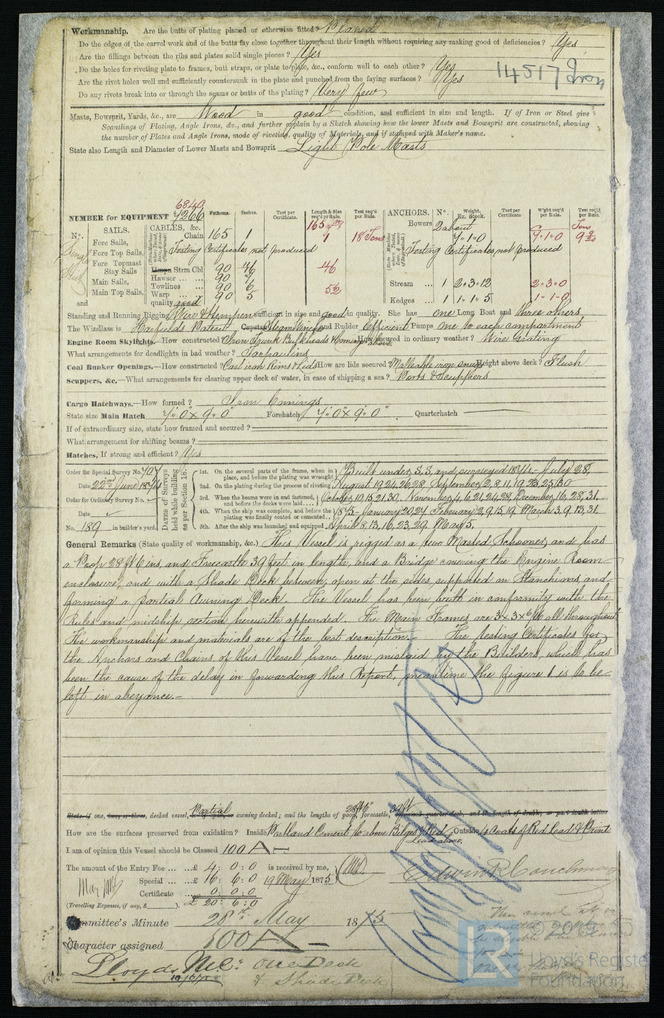 Workmanship. Are the butts of plating planed or otherwise fitted? Planed
Do the edges of the carvel work and of the butts lay close together throughout their length without requiring any making good of deficiencies? Yes
Are the fillings between the ribs and plates solid single pieces? Yes
Do the holes for riveting plate to frames, butt straps, or plate to plate, &c., conform well to each other? Yes
Are the rivet holes well and sufficiently countersunk in the plate and punched from the faying surfaces? Yes
14517 Iron
Do any rivets break into or through the seams or butts of the plating? Very few
Masts, Bowsprit, Yards, &c., are Wood in good condition, and sufficient in size and length. If of Iron or Steel give
Scantlings of Plating, Angle Irons, &c., and further explain by a Sketch showing how the lower Masts and Bowsprit are constructed, showing
the number of Plates and Angle Irons, mode of riveting, quality of Materials, and if stamped with Maker's name.
State also Length and Diameter of Lower Masts and Bowsprit Light Pole Masts
6840
NUMBER for EQUIPMENT 7266
Fathoms. Inches. Test per Certificate. Length & Size req'd per Rule. Test req'd per Rule.
ANCHORS. No. Weight. Ex. Stock. Test per Certificate. W'ght req'd per Rule. Test req'd p'r Rule.
No. SAILS. CABLES, &c.
Chain 165 1 165 1 18 Tons
Bowers 2 7-1-0 7-1-0 Tons
Fore Sails,
Fore Top Sails, Testing Certificates not produced
Testing Certificates not produced
Fore Topmast Stay Sails
Strm Cbl 90 4/6 4/6
Hawser 90 6
Main Sails, Towlines 90 6
Stream 1 2-3-12 2-3-0
Main Top Sails, Warp 90 5
Kedges 1 1-1-5 1-1-0
and quality good
Standing and Running Rigging Wire & Hempen sufficient in size and good in quality. She has one Long Boat and three others
The Windlass is Harfields Patent Capstan Steam Winch and Rudder Efficient Pumps one to each compartment
Engine Room Skylights.—How constructed? Iron Trunk Bulkheads & How secured in ordinary weather? Wire Grating
What arrangements for deadlights in bad weather? Tarpaulins
Coal Bunker Openings.—How constructed? Cast iron Rims & Lids How are lids secured? Height above deck? Flush
Scuppers, &c.—What arrangements for clearing upper deck of water, in case of shipping a sea? Ports & Scuppers
Cargo Hatchways.—How formed? Iron Comings
State size Main Hatch 7.0 x 9.0 Forehatch 7.0 x 9.0" Quarterhatch
If of extraordinary size, state how framed and secured?
What arrangement for shifting beams?
Hatches, If strong and efficient? Yes
Order for Special Survey No. 707
Date 22nd June 1874
Order for Ordinary Survey No.
Date
No. 189 in builder's yard.
Dates of Surveys held while building as per Section 18.
1st. On the several parts of the frame, when in place, and before the plating was wrought Built under S.S. and surveyed 1874 - July 28,
2nd. On the plating during the process of riveting August 19.24.26.28 September 2.8.11.19.23.25.30
3rd. When the beams were in and fastened, and before the decks were laid October 10.15.21.30. November 4.6.21.24.28. December 16.28.31.
4th. When the ship was complete, and before the plating was finally coated or cemented 1875 - January 20.27 February 2.9.15.19 March 3.9.13.31
5th. After the ship was launched and equipped April 8.13.16.23.29. May 5.
General Remarks (State quality of workmanship, &c.) This Vessel is rigged as a two Masted Schooner, and has
a Poop 28 ft 6 ins, and Forecastle 39 feet in length, and a Bridge covering the Engine Room
enclosure, and with a Shade Deck between, open at the sides supported on Stanchions and
forming a partial Awning Deck. The Vessel has been built in conformity with the
Rules and midship section herewith appended. The Main Frames are 3 x 3 x 6/16 all throughout
The workmanship and materials are of the best description.— The testing Certificates for
the Anchors and Chains of this Vessel have been mislaid by the Builders, which has
been the cause of the delay in forwarding this Report, meantime the figure 1 is to be
left in abeyance.—
State if one, two, or three, decked vessel, Partial awning decked; and the lengths of poop, 28 ft 6 forecastle, 39 ft
How are the surfaces preserved from oxidation? Inside Portland Cement to above Bilges & Red Lead above Outside 4 Coats of Red Lead & Paint
I am of opinion this Vessel should be Classed 100 A -
The amount of the Entry Fee £ 4 : 0 : 0 is received by me,
Special £ 16 : 6 : 0 19 May 1875
Certificate 0 : 0 : 0
(Travelling Expenses, if any, £ ) £ 20 : 6 : 0
Committee's Minute 28th May 1875
Character assigned 100 A -
Lloyds M.C. One Deck
& Shade Deck
LR
© 2019
Lloyd's Register
Foundation